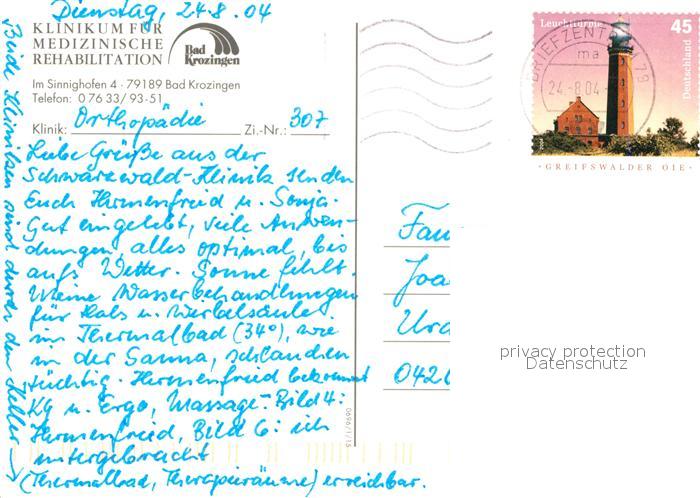 Dienstag, 24.8.04
KLINIKUM FÜR
MEDIZINISCHE
REHABILITATION
Bad
Krozingen
Im Sinnighofen 4 · 79189 Bad Krozingen
Telefon: 0 76 33/ 93-51
Klinik: Orthopädie Zi.-Nr.: 307
Liebe Grüße aus der
Schwarzwald-Klinik senden
Euch Hermenfried u. Sonja.
Gut eingelebt, viele Anwen-
dungen, alles optimal, bis
aufs Wetter. Sonne fehlt.
Meine Wasserbehandlungen
für Hals u. Wirbelsäule
im Thermalbad (34°), wie
in der Sauna, schlauchen
tüchtig. Hermenfried bekommt
KG u. Ergo, Massage. Bild 4:
Hermenfried, Bild 6: ich
untergebracht
(Thermalbad, Therapieräume) erreichbar.
Beide Kliniken sind durch den Keller →
15/1/9690
Leuchttürme
45
Deutschland
GREIFSWALDER OIE
BRIEFZENTR 79
ma
24.-8.04
Fam
Joa
042
privacy protection
Datenschutz